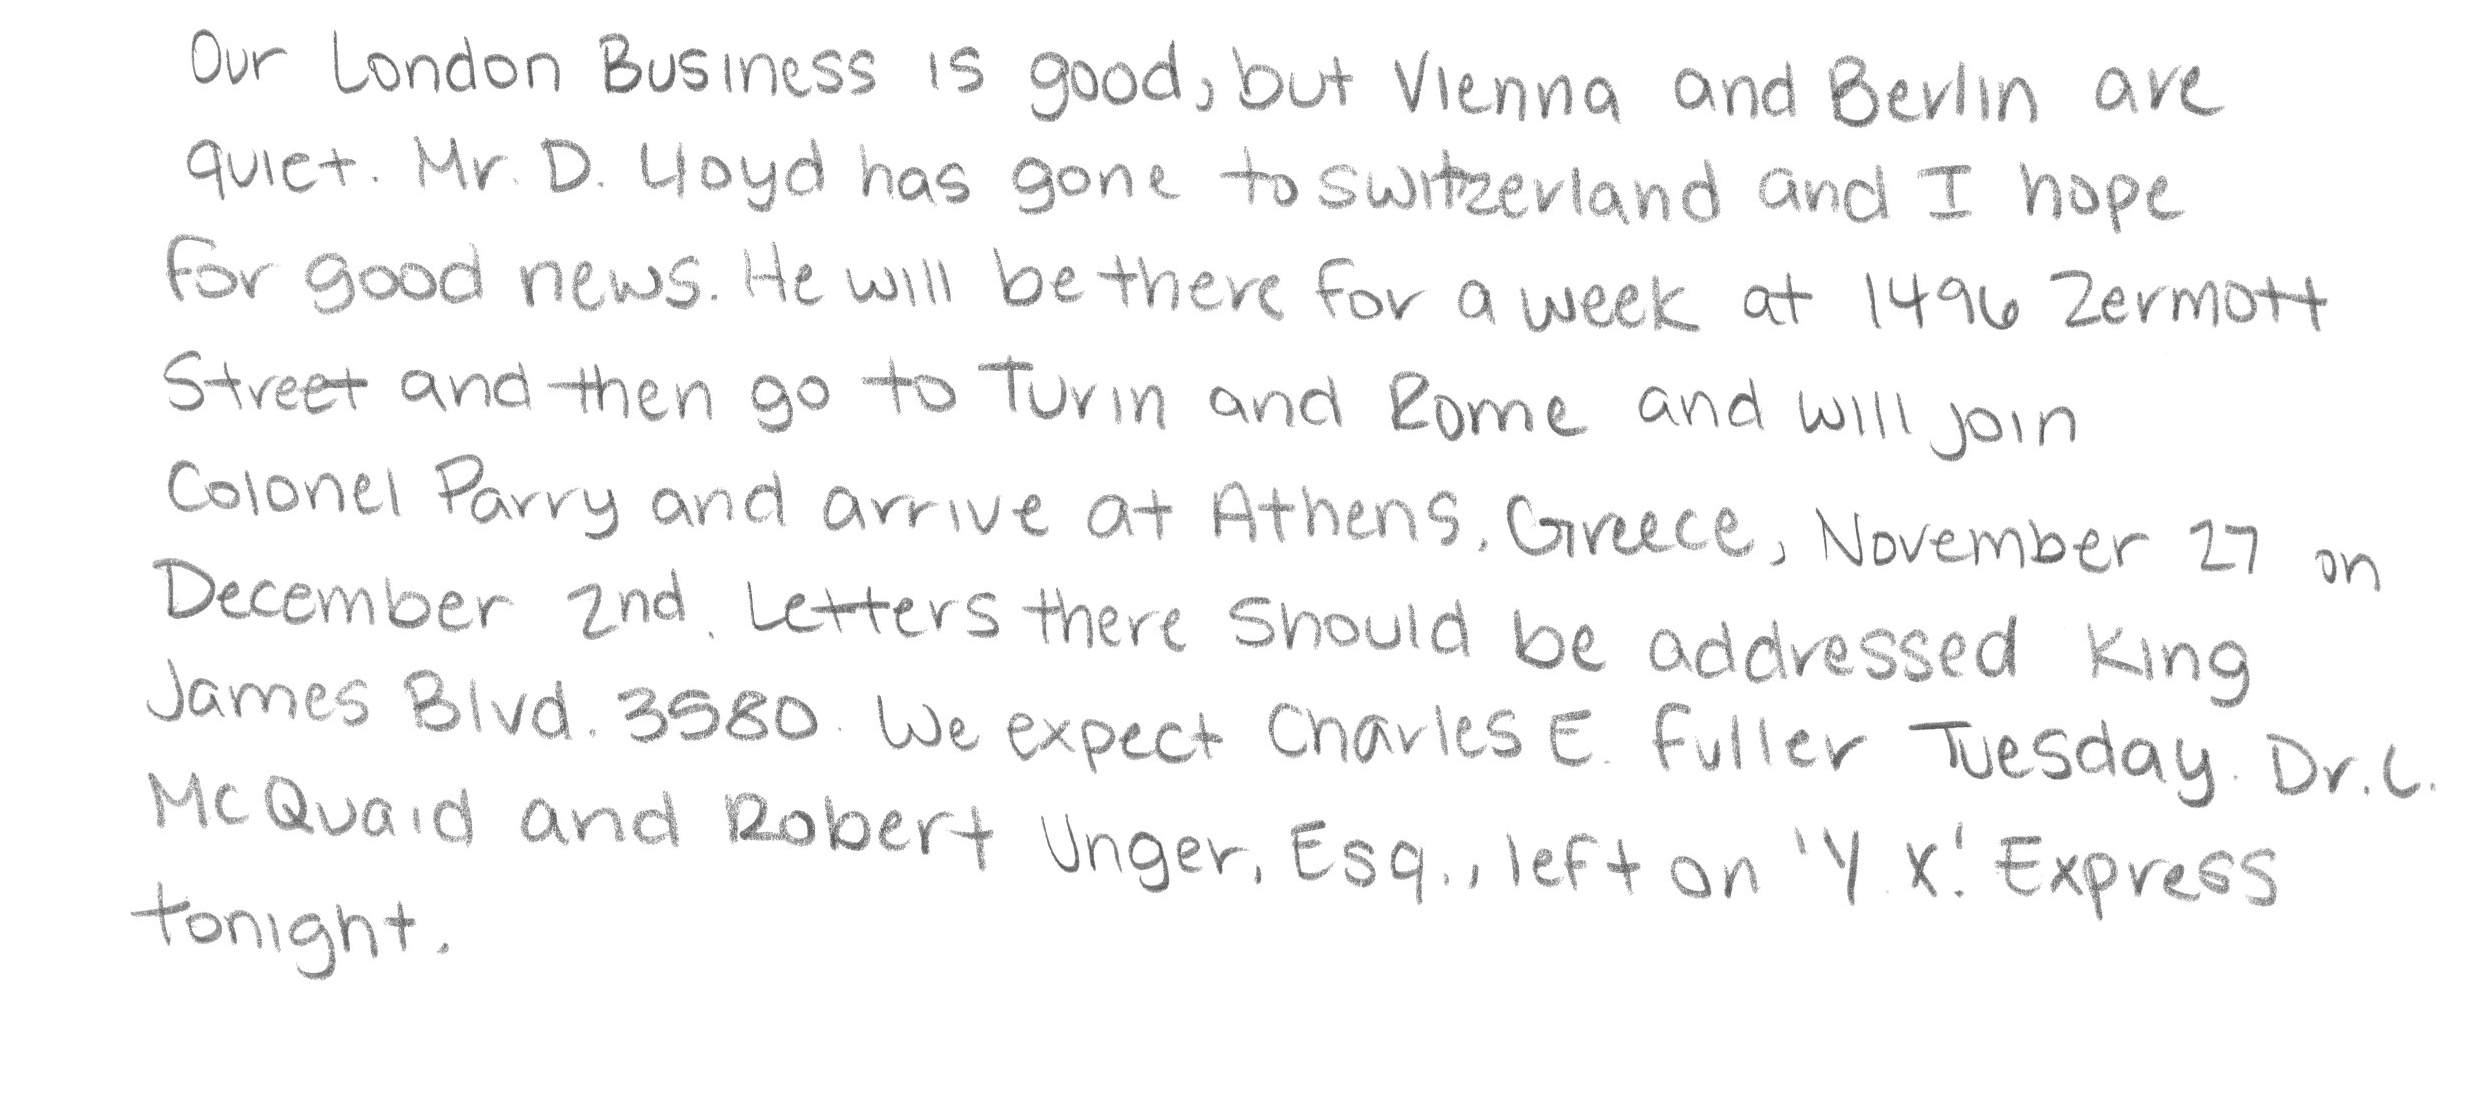 Our London Business is good, but Vienna and Berlin are
quiet. Mr. D. Lloyd has gone to Switzerland and I hope
for good news. He will be there for a week at 1496 Zermott
Street and then go to Turin and Rome and will join
Colonel Parry and arrive at Athens, Greece, November 27 on
December 2nd. Letters there Should be addressed King
James Blvd. 3580. We expect Charles E. Fuller Tuesday. Dr. L.
McQuaid and Robert Unger, Esq., left on 'Y. X.' Express
tonight.